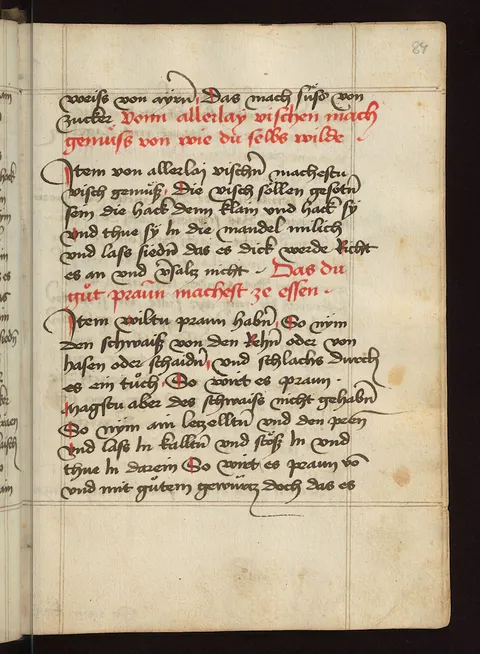 84
weiss von ayrn̄ Das mach süss von
zucker Vonn allerlay vischen mach
gemüss von wie du selbs wilde
Item von allerlai vischn̄ machestu
visch gemüß Die visch sollen gesotn̄
sein die hack denn klain vnd hack sy
vnd thue sy In die mandel milich
vnd lass siedn̄ das es dick werde Richt
es an vnd v̄saltz nicht Das du
gůt praūn machest ze essen
Item wiltu praun habn̄ So nym
den schwaiß von den Rehn̄ oder von
hasen oder schaidn̄ vnd schlachs durch
es ein tůch So wirt es praun
magstu aber des schwaiss nicht gehabn̄
So nym ain letzelltn̄ vnd den pren̄
vnd lass In kalltn̄ vnd stöß In vnd
thue In darein So wirt es praun vō
vnd mit gůtem gewürtz doch das es